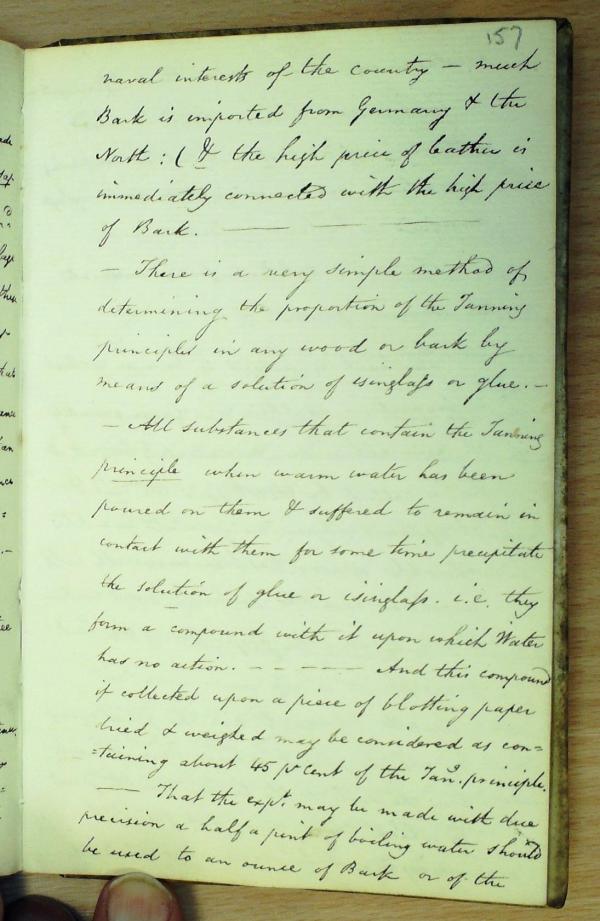 157
naval interests of the country — much
Bark is imported from Germany & the
North : ( & the high price of leather is
immediately connected with the high price
of Bark. ——— ———
— There is a very simple method of
determining the proportion of the Tanning
principles in any wood or bark by
means of a solution of isinglaſs or glue. —
— All substances that contain the Tanning
principle when warm water has been
poured on them & suffered to remain in
contact with them for some time precipitate
the solution of glue or isinglaſs. i.e. they
form a compound with it upon which Water
has no action. — — — — And this compound
if collected upon a piece of blotting paper
dried & weighed may be considered as con=
=taining about 45 pr cent of the Tang. principle.
— That the expt. may be made with due
precision a half a pint of boiling water should
be used to an ounce of Bark or of the